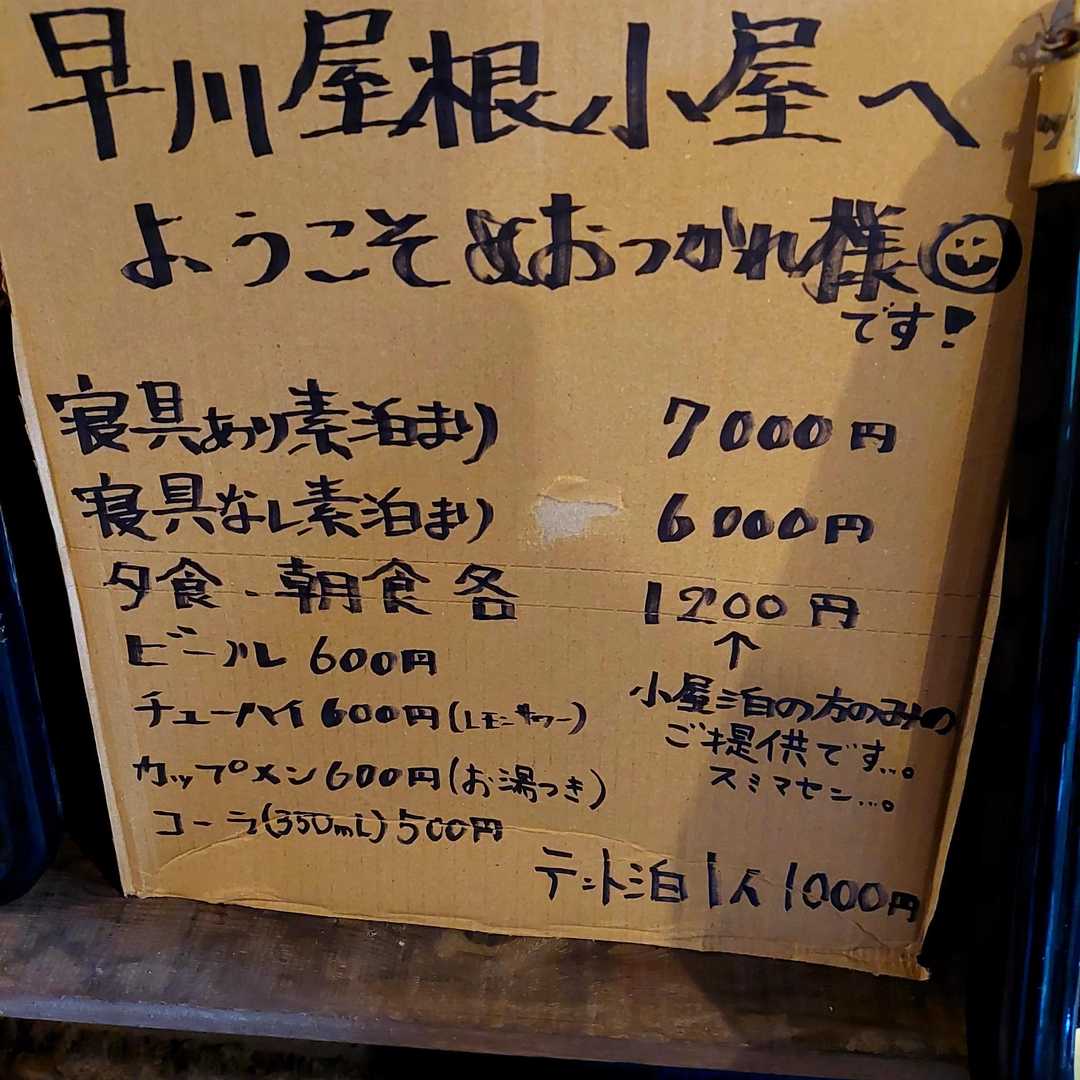 早川屋根小屋へ
ようこそ おつかれ様
です!
寝具あり素泊まり 7000円
寝具なし素泊まり 6000円
夕食・朝食 各 1200円
↑
小屋泊の方のみの
ご提供です...。
スミマセン...。
ビール 600円
チューハイ 600円(レモンサワー)
カップメン 600円(お湯つき)
コーラ(350mL) 500円
テント泊 1人 1000円